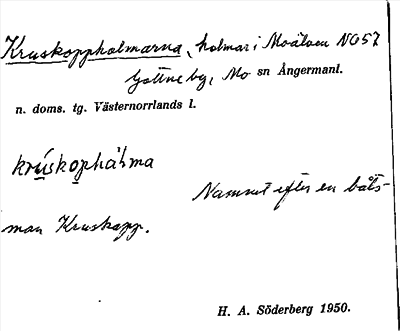 Kruskoppholmarna, holmar i Moälven NO57
Gottne by, Mo sn Ångermanl.
n. doms. tg. Västernorrlands l.
krúskophàlma
Namnet efter en båts-
man Kruskopp.
H. A. Söderberg 1950.